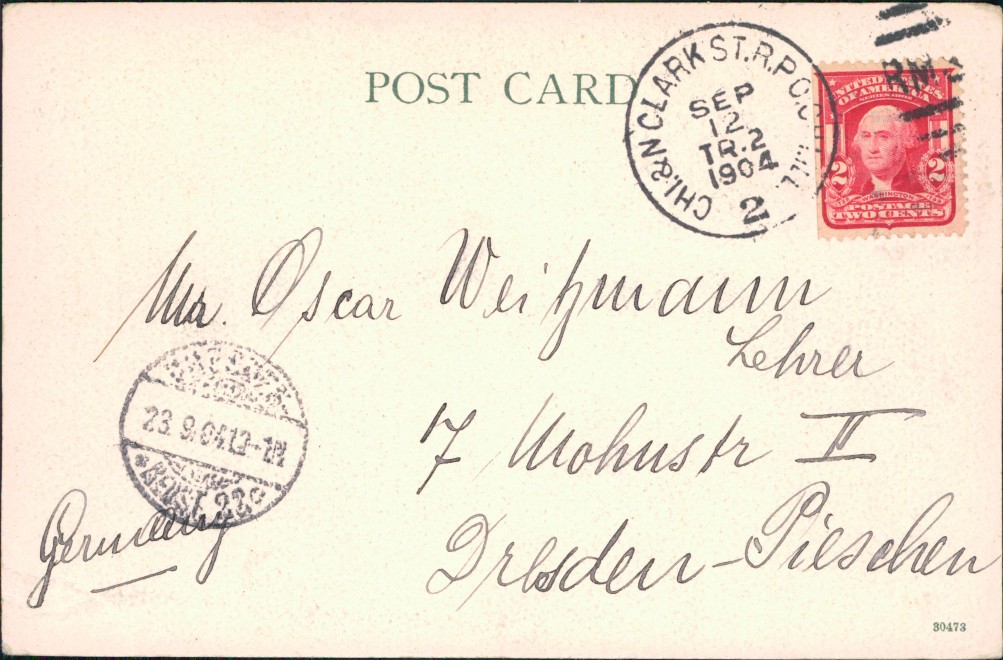 POST CARD
CHI. & N CLARK ST. R.P.O.
SEP
12
TR. 2
1904
2
RMS
UNITED STATES
OF AMERICA
SERIES 1902
2 2
WASHINGTON
POSTAGE
TWO CENTS
Mr. Oscar Weitzmann
Lehrer
17 Mohnstr II
Dresden-Pieschen
23.9.04
Germany
30473